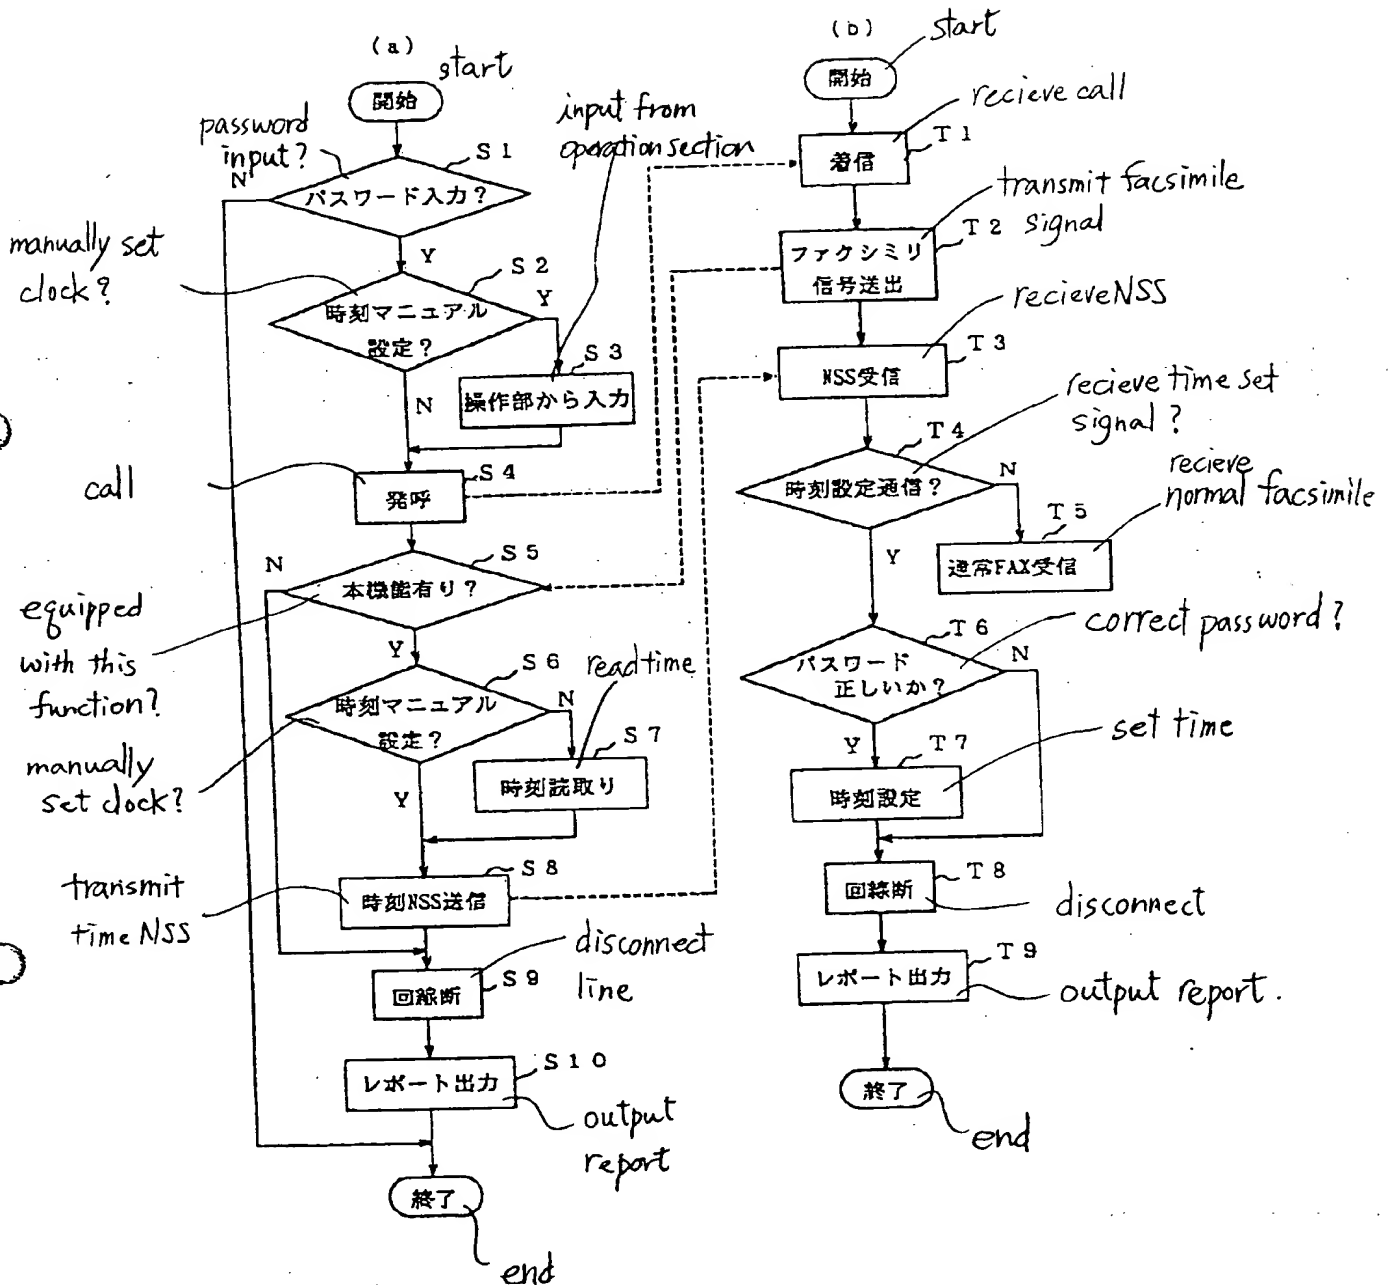 (a)
start
開始
password
input?
S1
N
パスワード入力?
Y
input from
operation section
manually set
clock?
S2
時刻マニュアル
設定?
Y
N
S3
操作部から入力
call
S4
発呼
S5
N
本機能有り?
equipped
with this
function?
Y
S6
時刻マニュアル
設定?
N
read time
S7
時刻読取り
manually
set clock?
Y
S8
時刻NSS送信
transmit
time NSS
disconnect
line
S9
回線断
S10
レポート出力
output
report
終了
end
(b)
start
開始
recieve call
T1
着信
transmit facsimile
signal
T2
ファクシミリ
信号送出
recieve NSS
T3
NSS受信
recieve time set
signal?
T4
時刻設定通信?
N
recieve
normal facsimile
T5
通常FAX受信
Y
T6
correct password?
パスワード
正しいか?
N
Y
T7
set time
時刻設定
T8
回線断
disconnect
T9
レポート出力
output report.
終了
end